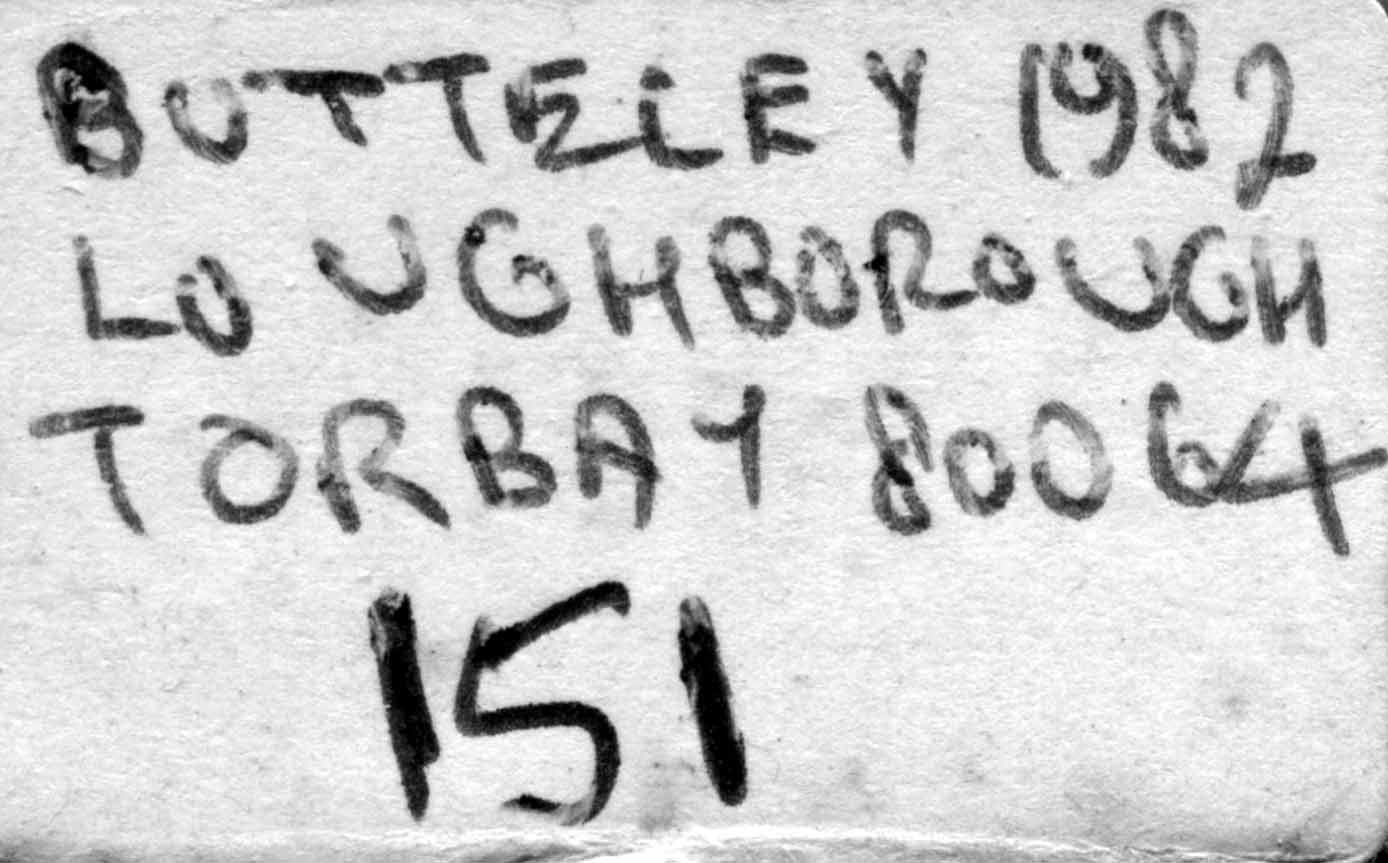 BUTTELEY 1982
LOUGHBOROUGH
TORBAY 80064
151